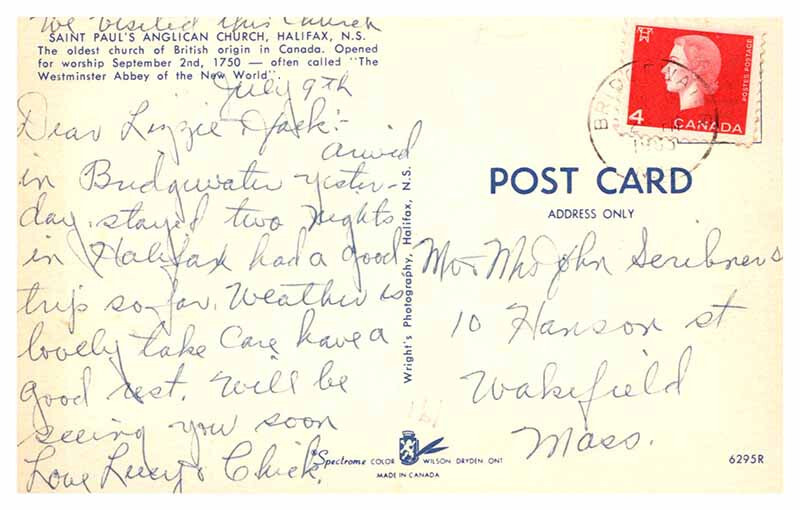 We visited this Church
SAINT PAUL'S ANGLICAN CHURCH, HALIFAX, N.S.
The oldest church of British origin in Canada. Opened
for worship September 2nd, 1750 — often called "The
Westminster Abbey of the New World".
July 9th
Dear Lizzie & Jack:-
arrived
in Bridgwater yester-
day. stayed two nights
in Halifax had a good
trip so far. Weather is
lovely take Care have a
good rest. Will be
seeing you soon
Love Lucy & Chick.
Wright's Photography, Halifax, N.S.
POSTES POSTAGE
4 CANADA
POST CARD
ADDRESS ONLY
Mr & Mrs John Scribner
10 Hanson st
Wakefield
Mass.
Spectrome COLOR WILSON DRYDEN ONT
MADE IN CANADA
6295R